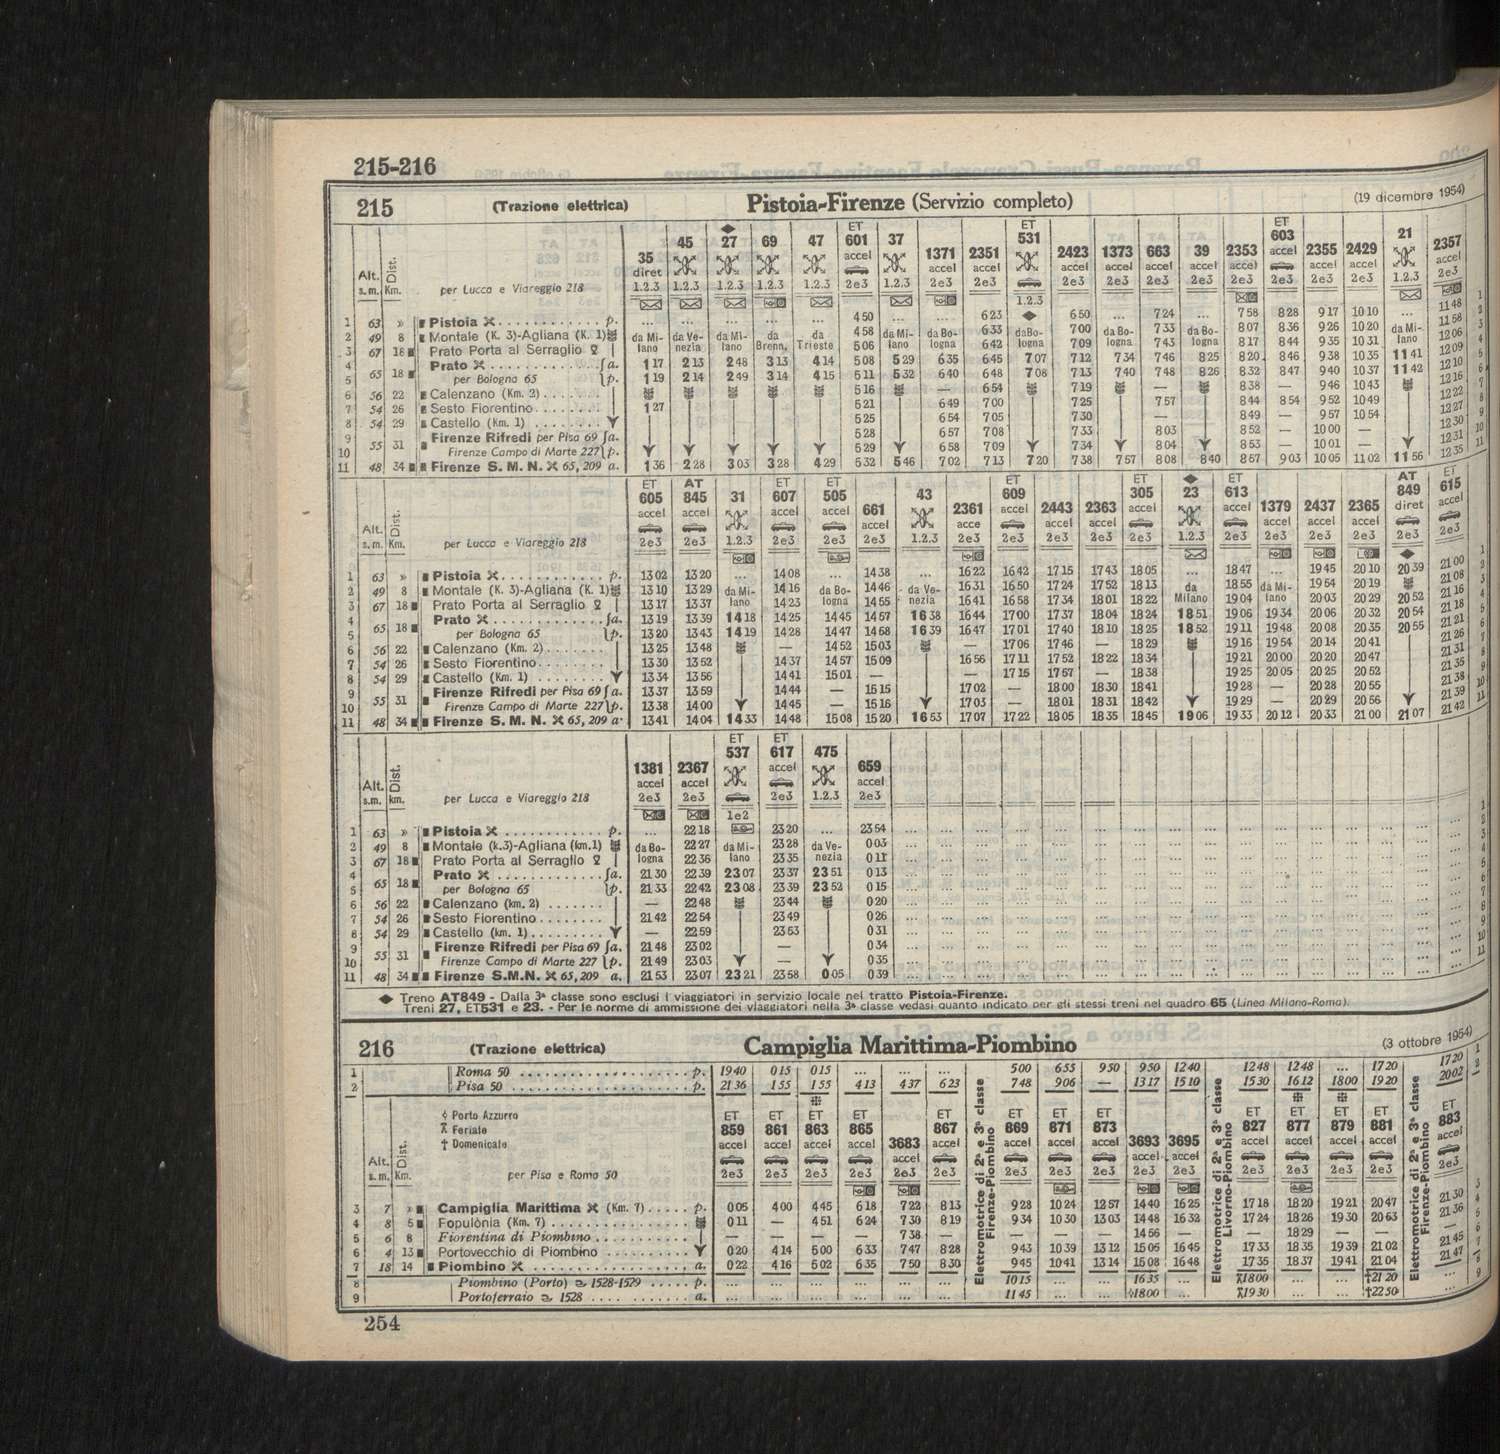 215-216
215 (Trazione elettrica) Pistoia-Firenze (Servizio completo) (19 dicembre 1954)
ET ET ET
45 27 69 47 601 37 531 603 21 2357
35 1371 2351 2423 1373 663 39 2353 2355 2429
Alt. s.m. Dist. Km. per Lucca e Viareggio 218
1 63 » Pistoia . . . p. ... ... ... ... ... 4 50 ... ... 6 23 6 50 ... 7 24 ... 7 58 8 28 9 17 10 10 ... 11 48
2 49 8 Montale (K. 3)-Agliana (K. 1) da Milano da Venezia da Milano da Brenn. da Trieste 4 58 da Milano da Bologna 6 33 da Bologna 7 00 da Bologna 7 33 da Bologna 8 07 8 36 9 26 10 20 da Milano 11 58
3 67 18 Prato Porta al Serraglio 5 06 6 42 7 09 7 43 8 17 8 44 9 35 10 31 12 06
4 65 18 Prato . . . a. 1 17 2 13 2 48 3 13 4 14 5 08 5 29 6 35 6 45 7 07 7 12 7 34 7 46 8 25 8 20 8 46 9 38 10 35 11 41 12 09
5 per Bologna 65 p. 1 19 2 14 2 49 3 14 4 15 5 11 5 32 6 40 6 48 7 08 7 13 7 40 7 48 8 26 8 32 8 47 9 40 10 37 11 42 12 10
6 56 22 Calenzano (Km. 2) . . . 5 16 — 6 54 7 19 — 8 38 — 9 46 10 43 12 16
7 54 26 Sesto Fiorentino . . . 1 27 5 21 6 49 7 00 7 25 7 57 8 44 8 54 9 52 10 49 12 22
8 54 29 Castello (Km. 1) . . . 5 25 6 54 7 05 7 30 — 8 49 — 9 57 10 54 12 27
9 55 31 Firenze Rifredi per Pisa 69 a. 5 28 6 57 7 08 7 33 8 03 8 52 — 10 00 — 12 30
10 Firenze Campo di Marte 227 p. 5 29 6 58 7 09 7 34 8 04 8 53 — 10 01 — 12 31
11 48 34 Firenze S. M. N. 65, 209 a. 1 36 2 28 3 03 3 28 4 29 5 32 5 46 7 02 7 13 7 20 7 38 7 57 8 08 8 40 8 57 9 03 10 05 11 02 11 56 12 35
ET AT ET ET ET ET ET AT ET
605 845 31 607 505 661 43 2361 609 2443 2363 305 23 613 1379 2437 2365 849 615
Alt. s.m. Dist. Km. per Lucca e Viareggio 218
1 63 » Pistoia . . . p. 13 02 13 20 ... 14 08 ... 14 38 ... 16 22 16 42 17 15 17 43 18 05 ... 18 47 ... 19 45 20 10 20 39 21 00
2 49 8 Montale (K. 3)-Agliana (K. 1) 13 10 13 29 da Milano 14 16 da Bologna 14 46 da Venezia 16 31 16 50 17 24 17 52 18 13 da Milano 18 55 da Milano 19 54 20 19 21 08
3 67 18 Prato Porta al Serraglio 13 17 13 37 14 23 14 55 16 41 16 58 17 34 18 01 18 22 19 04 20 03 20 29 20 52 21 16
4 65 18 Prato . . . a. 13 19 13 39 14 18 14 25 14 45 14 57 16 38 16 44 17 00 17 37 18 04 18 24 18 51 19 06 19 34 20 06 20 32 20 54 21 18
5 per Bologna 65 p. 13 20 13 43 14 19 14 28 14 47 14 58 16 39 16 47 17 01 17 40 18 10 18 25 18 52 19 11 19 48 20 08 20 35 20 55 21 21
6 56 22 Calenzano (Km. 2) . . . 13 25 13 48 — 14 52 15 03 — 17 06 17 46 — 18 29 19 16 19 54 20 14 20 41 21 26
7 54 26 Sesto Fiorentino . . . 13 30 13 52 14 37 14 57 15 09 16 56 17 11 17 52 18 22 18 34 19 21 20 00 20 20 20 47 21 31
8 54 29 Castello (Km. 1) . . . 13 34 13 56 14 41 15 01 — — 17 15 17 57 — 18 38 19 25 20 05 20 25 20 52 21 35
9 55 31 Firenze Rifredi per Pisa 69 a. 13 37 13 59 14 44 — 15 15 17 02 — 18 00 18 30 18 41 19 28 — 20 28 20 55 21 38
10 Firenze Campo di Marte 227 p. 13 38 14 00 14 45 — 15 16 17 03 — 18 01 18 31 18 42 19 29 — 20 29 20 56 21 39
11 48 34 Firenze S. M. N. 65, 209 a. 13 41 14 04 14 33 14 48 15 08 15 20 16 53 17 07 17 22 18 05 18 35 18 45 19 06 19 33 20 12 20 33 21 00 21 07 21 42
ET ET
1381 2367 537 617 475 659
accel accel accel accel
2e3 2e3 1e2 2e3 1.2.3 2e3
Alt. s.m. Dist. km. per Lucca e Viareggio 218
1 63 » Pistoia . . . p. ... 22 18 23 20 ... 23 54
2 49 8 Montale (k.3)-Agliana (km.1) da Bologna 22 27 da Milano 23 28 da Venezia 0 03
3 67 18 Prato Porta al Serraglio 22 36 23 35 0 11
4 65 18 Prato . . . a. 21 30 22 39 23 07 23 37 23 51 0 13
5 per Bologna 65 p. 21 33 22 42 23 08 23 39 23 52 0 15
6 56 22 Calenzano (km. 2) . . . — 22 48 23 44 0 20
7 54 26 Sesto Fiorentino . . . 21 42 22 54 23 49 0 26
8 54 29 Castello (km. 1) . . . — 22 59 23 53 0 31
9 55 31 Firenze Rifredi per Pisa 69 a. 21 48 23 02 — 0 34
10 Firenze Campo di Marte 227 p. 21 49 23 03 — 0 35
11 48 34 Firenze S.M.N. 65, 209 a. 21 53 23 07 23 21 23 58 0 05 0 39
◆ Treno AT849 - Dalla 3ª classe sono esclusi i viaggiatori in servizio locale nel tratto Pistoia-Firenze.
Treni 27, ET531 e 23. - Per le norme di ammissione dei viaggiatori nella 3ª classe vedasi quanto indicato per gli stessi treni nel quadro 65 (Linea Milano-Roma).
216 (Trazione elettrica) Campiglia Marittima-Piombino (3 ottobre 1954)
1 Roma 50 . . . p. 19 40 0 15 0 15 ... ... ... 5 00 6 55 9 50 9 50 12 40 12 48 12 48 ... 17 20 17 20
2 Pisa 50 . . . p. 21 36 1 55 1 55 4 13 4 37 6 23 7 48 9 06 — 13 17 15 10 15 30 16 12 18 00 19 20 20 02
Porto Azzurro
Feriale
† Domenicale
ET ET ET ET ET ET ET ET ET ET ET ET ET
859 861 863 865 3683 867 869 871 873 3693 3695 827 877 879 881 883
accel accel accel accel accel accel accel accel accel accel accel accel accel accel accel accel
2e3 2e3 2e3 2e3 2e3 2e3 2e3 2e3 2e3 2e3 2e3 2e3 2e3 2e3 2e3 2e3
Elettromotrice di 2ª e 3ª classe Firenze-Piombino
Elettromotrice di 2ª e 3ª classe Livorno-Piombino
Elettromotrice di 2ª e 3ª classe Firenze-Piombino
Alt. s.m. Dist. Km. per Pisa e Roma 50
3 7 » Campiglia Marittima (Km. 7) . . . p. 0 05 4 00 4 45 6 18 7 22 8 13 9 28 10 24 12 57 14 40 16 25 17 18 18 20 19 21 20 47 21 30
4 8 5 Fopulònia (Km. 7) . . . 0 11 — 4 51 6 24 7 30 8 19 9 34 10 30 13 03 14 48 16 32 17 24 18 26 19 30 20 53 21 36
5 6 8 Fiorentina di Piombino . . . — — — — 7 38 — — — — 14 56 — — 18 29 — — —
6 4 13 Portovecchio di Piombino . . . 0 20 4 14 5 00 6 33 7 47 8 28 9 43 10 39 13 12 15 05 16 45 17 33 18 35 19 39 21 02 21 45
7 18 14 Piombino . . . a. 0 22 4 16 5 02 6 35 7 50 8 30 9 45 10 41 13 14 15 08 16 48 17 35 18 37 19 41 21 04 21 47
8 Piombino (Porto) 1528-1529 . . . p. ... ... ... ... ... ... 10 15 ... ... 16 35 ... 18 00 ... ... †21 20 ...
9 Portoferraio 1528 . . . a. ... ... ... ... ... ... 11 45 ... ... 18 00 ... 19 30 ... ... †22 50 ...
254